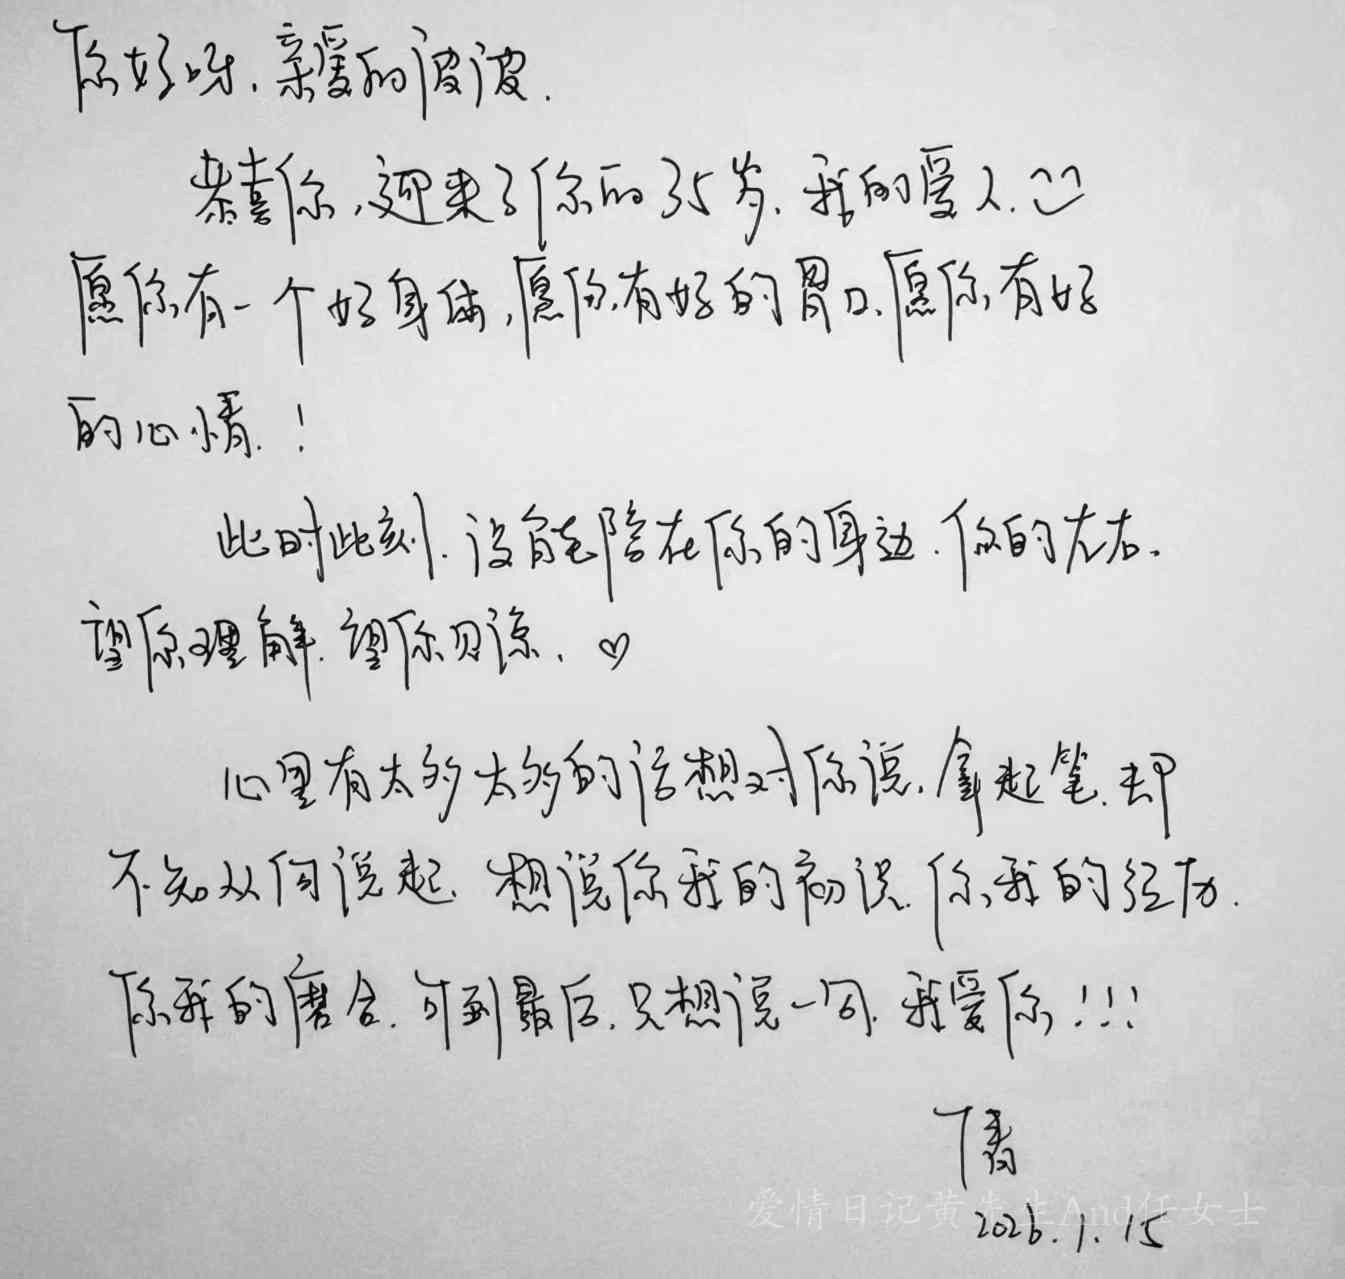 你好呀,亲爱的波波.
恭喜你,迎来了你的35岁.我的爱人.
愿你有一个好身体,愿你有好的胃口.愿你有好
的心情.!
此时此刻.没能陪在你的身边.你的左右.
望你理解.望你见谅.♡
心里有太多太多的话想对你说.拿起笔.却
不知从何说起.想说你我的初识.你我的经历.
你我的磨合.可到最后.只想说一句.我爱你!!!
爱情日记黄先生And任女士
2026.1.15